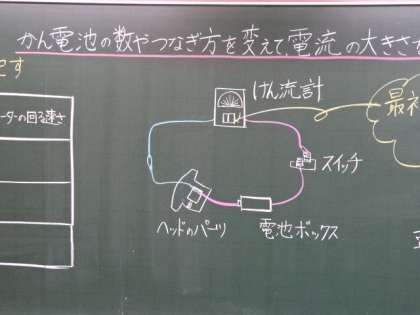 かん電池の数やつなぎ方を変えて、電流の大きさ
です
ーターの回る速さ
けん流計
最初
スイッチ
電池ボックス
ヘッドのパーツ